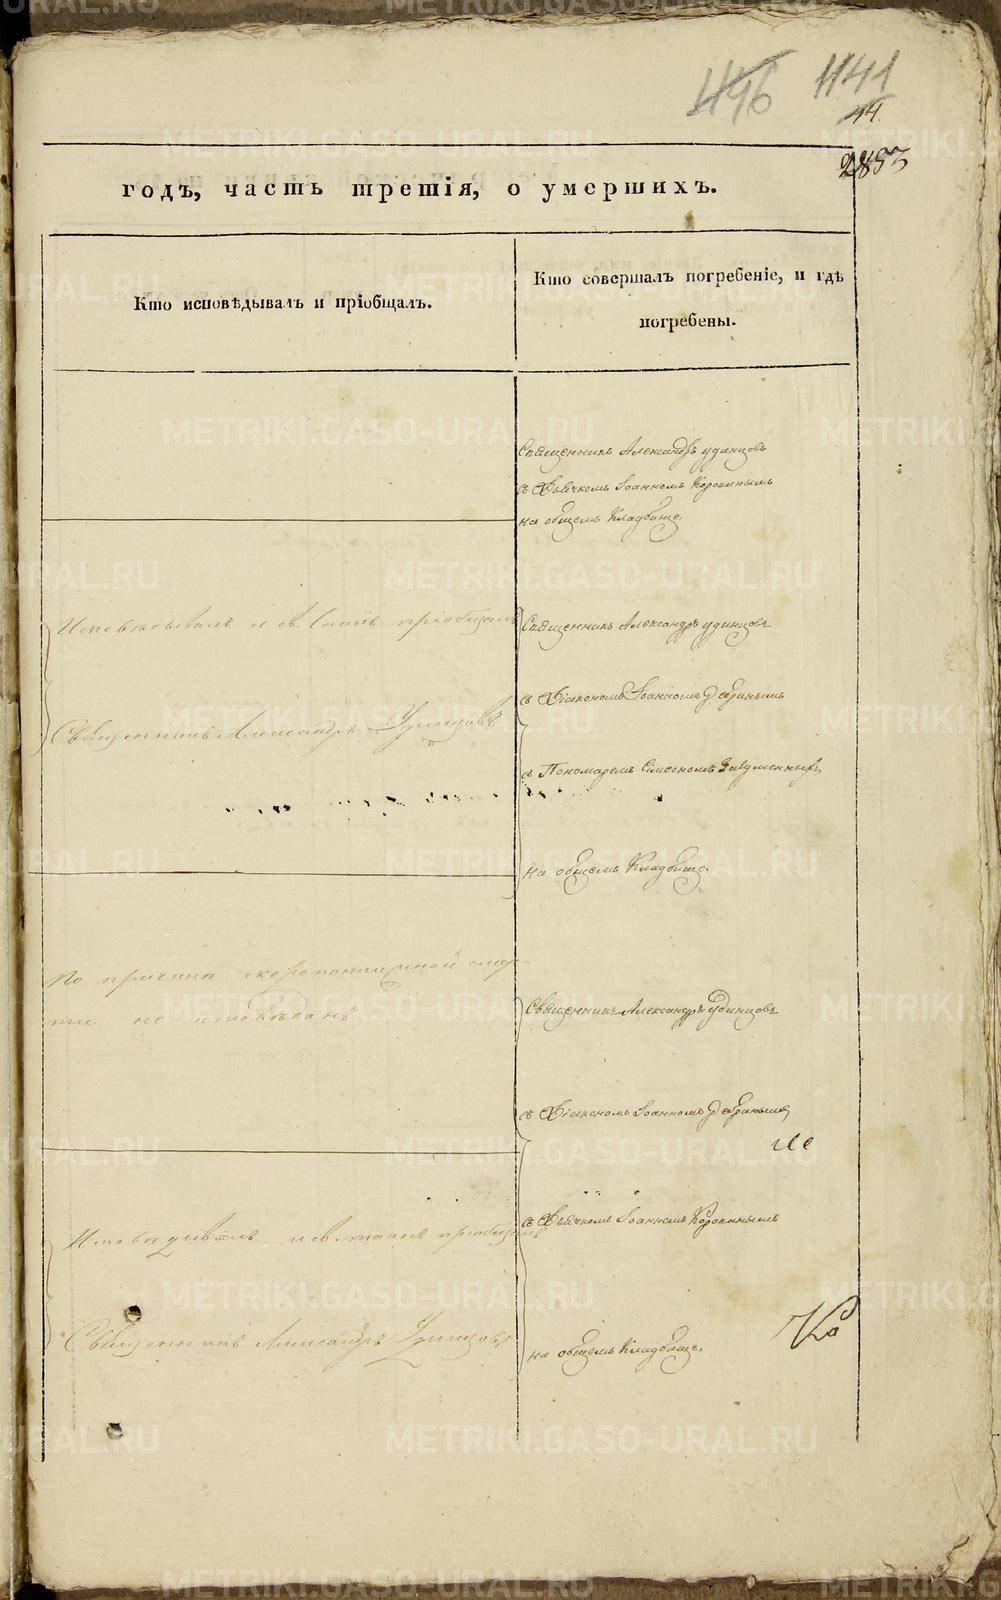 446 1141
44.
2853
годъ, часть третія, о умершихъ.
Кто исповѣдывалъ и пріобщалъ.
Кто совершалъ погребеніе, и гдѣ
погребены.
Священникъ Александръ Удинцовъ
съ Дьячкомъ Іоанномъ Коровинымъ
на общемъ Кладбище.
Исповѣдывалъ и св. Таинъ пріобщалъ
Священникъ Александръ Удинцовъ
Священникъ Александръ Удинцовъ
съ Діакономъ Іоанномъ
съ Пономаремъ Симеономъ
на общемъ Кладбище.
По причинѣ скоропостижной смер-
ти не исповѣданъ
Священникъ Александръ Удинцовъ
съ Діакономъ Іоанномъ
съ Дьячкомъ Іоанномъ Коровинымъ
на общемъ Кладбище.
Исповѣдывалъ и св. таинъ пріобщалъ
Священникъ Александръ Удинцовъ
METRIKI.GASO-URAL.RU